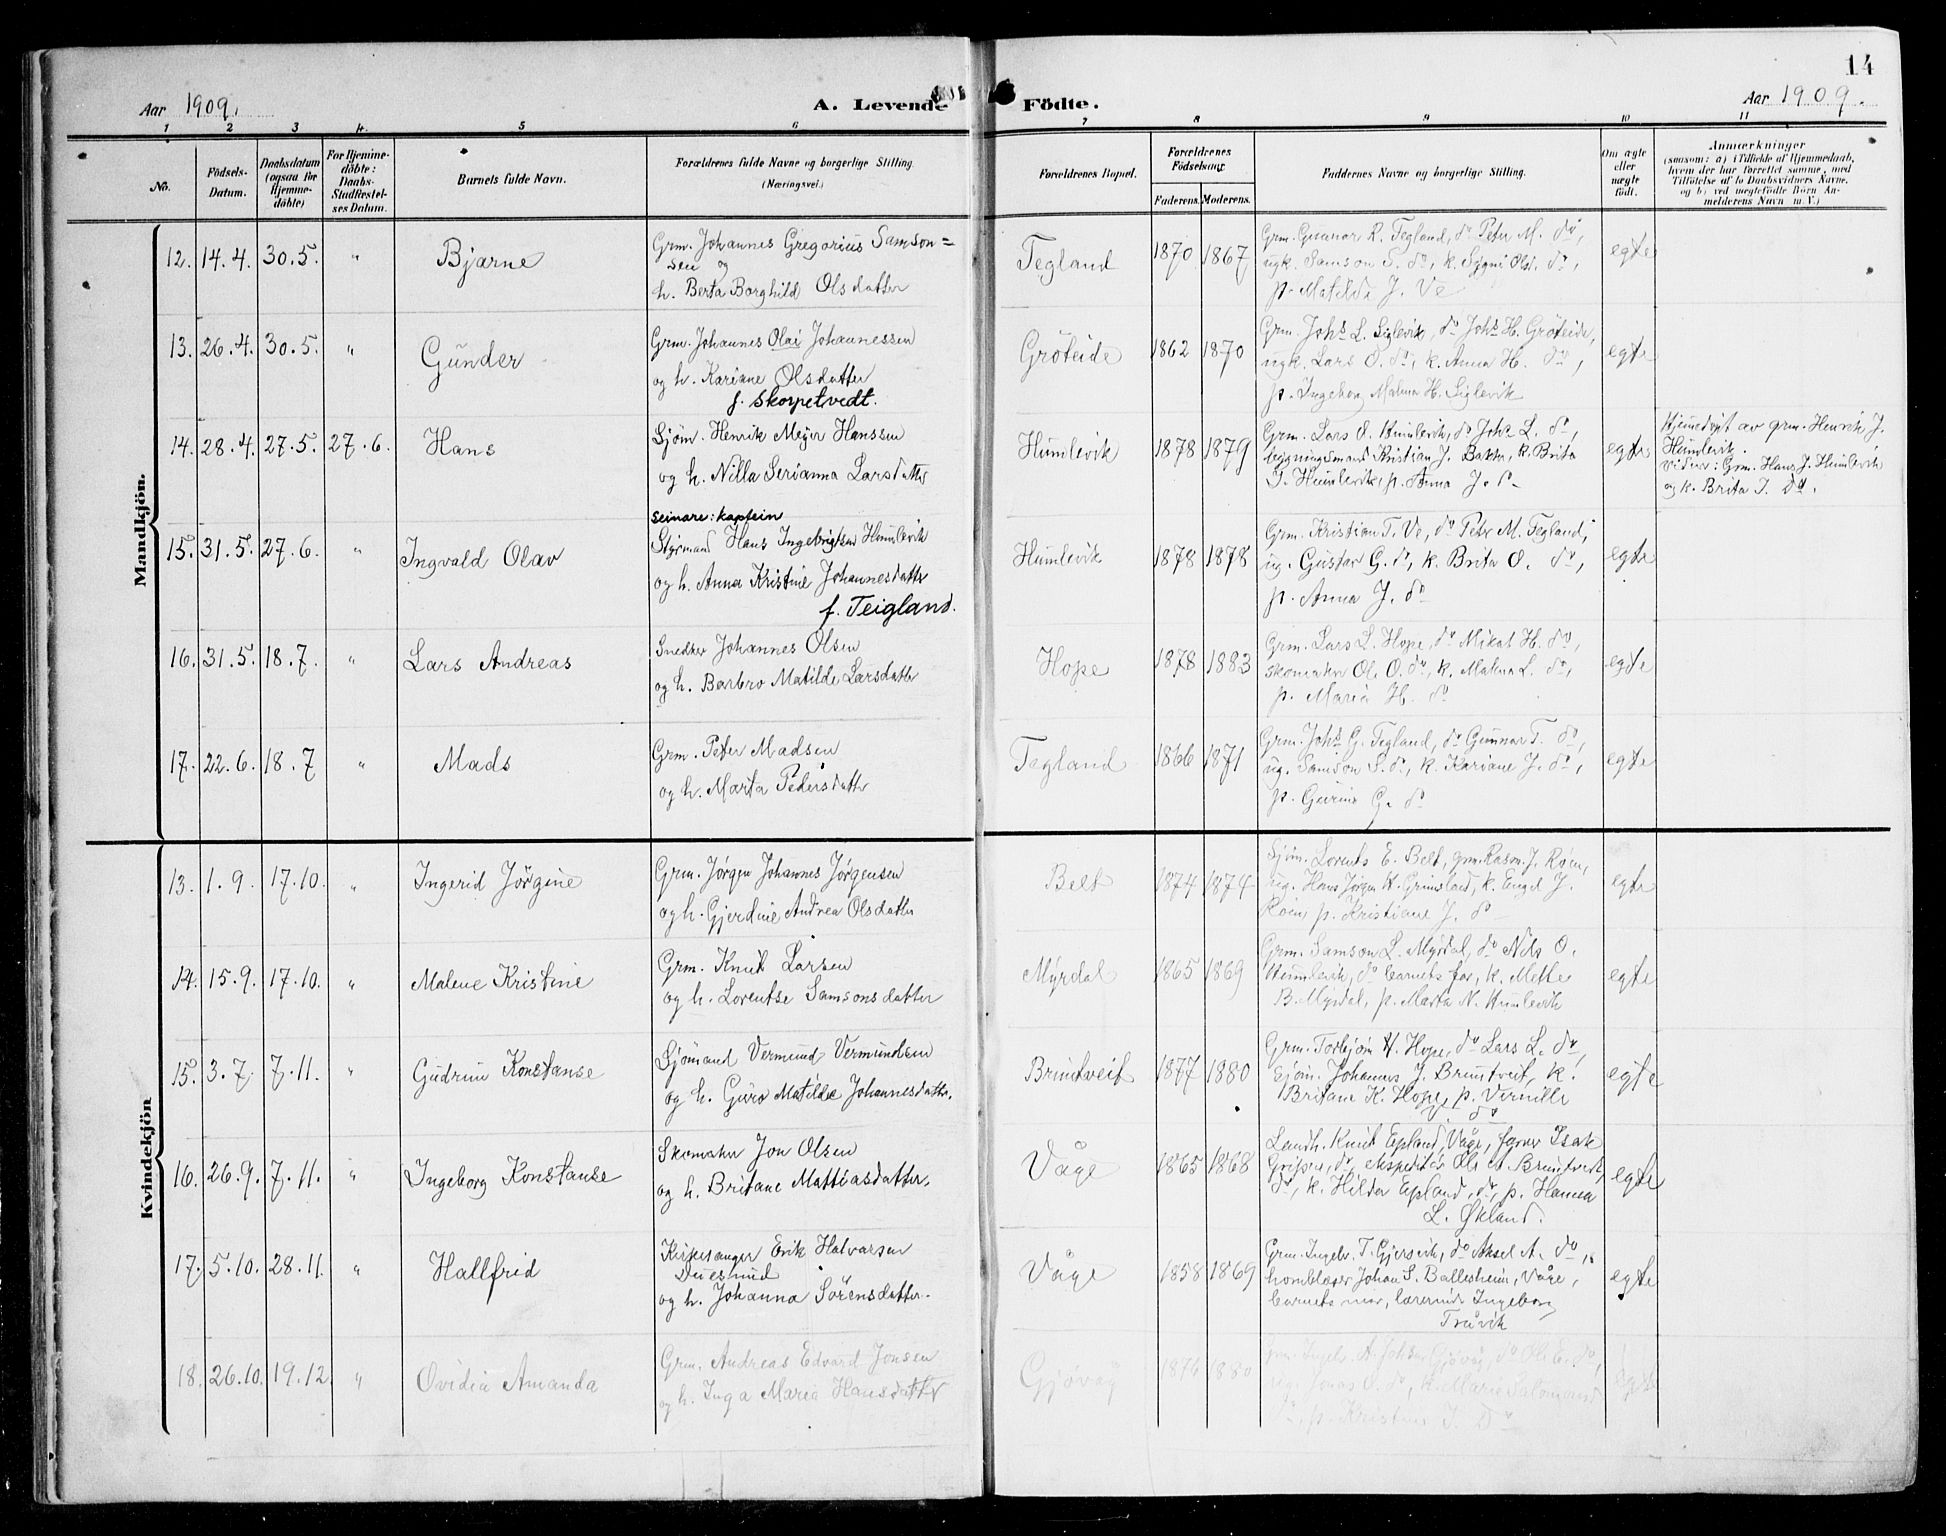 14
Aar 1909.
A. Levende Födte.
Aar 1909.
1 2 3 4. 5 6 7 8 9 10 11
No.
Födsels-Datum.
Daabsdatum (ogsaa for Hjemme-döbte)
For Hjemme-döbte: Daabs-Stadfæstel-ses Datum.
Barnets fulde Navn.
Forældrenes fulde Navne og borgerlige Stilling.
(Næringsvei.)
Forældrenes Bopæl.
Forældrenes Födselsaar
Faderens. Moderens.
Faddernes Navne og borgerlige Stilling.
Om ægte eller uægte födt.
Anmærkninger
(saasom: a) i Tilfælde af Hjemmedaab,
hvem der har forrettet samme, med
Tilföielse af to Daabsvidners Navne,
og b) ved uægtefödte Börn An-
melderens Navn m. V.)
Mandkjön.
12. 14.4. 30.5. " Bjarne
Grm. Johannes Gregorius Samson=
sen og
h. Berta Borghild Olsdatter
Tegland 1870 1867
Grm. Gunnar R. Tegland, do Peter M. do,
ugk. Samson S. do, k. Sygni Olsd. do,
p. Matilde J. Ve
egte
13. 26.4. 30.5. " Gunder
Grm. Johannes Olai Johannessen
og h. Kariane Olsdatter
f. Skorpetvedt.
Gröteide 1862 1870
Grm. Johs L. Siglevik, do Johs H. Gröteide,
ugk. Lars O. do, k. Anna H. do,
p. Ingeborg Malma H. Siglevik
egte
14. 28.4. 27.5. 27.6. Hans
Sjöm. Henrik Meyer Hanssen
og h. Nilla Serianna Larsdatter
Humlevik 1878 1879
Grm. Lars O. Humlevik, do Johs L. do,
bygningsmand Kristian J. Bakka, k. Brita
J. Humlevik, p. Anna J. do
egte
Hjemedöpt av grm. Henrik J.
Humlevik.
Vidner: Grm. Hans J. Humlevik
og k. Brita J. Do.
15. 31.5. 27.6. " Ingvald Olav
seinare: kaptein
Styrmand Hans Ingebrigtsen Humlevik
og h. Anna Kristine Johannesdatter
f. Teigland.
Humlevik 1878 1878
Grm. Kristian T. Ve, do Peter M. Tegland,
ug. Gustav G. do, k. Brita O. do,
p. Anna J. do
egte
16. 31.5. 18.7. " Lars Andreas
Snedker Johannes Olsen
og h. Barbro Matilde Larsdatter
Hope 1878 1883
Grm. Lars L. Hope, do Mikal H. do,
skomaker Ol. O. do, k. Malma L. do,
p. Maria H. do
egte
17. 22.6. 18.7 " Mads
Grm. Peter Madsen
og h. Marta Pedersdatter
Tegland 1866 1871
Grm. Johs G. Tegland, do Gunnar T. do,
ug. Samson S. do, k. Kariane J. do,
p. Gurine G. do
egte
Kvindekjön
13. 1.9. 17.10. " Ingerid Jörgine
Grm. Jørgen Johannes Jørgensen
og h. Gjerdine Andrea Olsdatter
Belt 1874 1874
Sjöm. Lorents E. Belt, grm. Rasm. J. Røen,
ug. Hans Jørgen H. Grimsland, k. Engel J.
Røen, p. Kristiane J. do
egte
14. 15.9. 17.10. " Malene Kristine
Grm. Knut Larsen
og h. Lorentse Samsonsdatter
Myrdal 1865 1869
Grm. Samson L. Myrdal, do Nils O.
Humlevik, do barnets far, k. Mette
B. Myrdal, p. Marta N. Humlevik
egte
15. 3.7. 7.11. " Gudrun Konstanse
Sjömand Vermund Vermundsen
og h. Guro Matilde Johannesdatter.
Bruntveit 1877 1880
Grm. Torbjörn H. Hope, do Lars L. do,
Sjöm. Johannes J. Bruntveit, k.
Britane K. Hope, p. Vernille
J. do
egte
16. 26.9. 7.11. " Ingeborg Konstanse
Skomaker Jon Olsen
og h. Britane Mattiasdatter.
Våge 1865 1868
Landh. Knut Epland, Våge, forver Isak
Gripen, do, ekspeditör Ole A. Bruntveit,
do, k. Hilda Epland, do, p. Hanna
L. Økland.
egte
17. 5.10. 28.11. " Hallfrid
Kirkesanger Erik Halvarsen
Duesund
og h. Johanna Sörensdatter.
Våge 1858 1869
Grm. Ingebr. T. Gjersvik, do Aksel A. do,
hornblæser Johan S. Ballesheim, Våge,
barnets mor, lærerinde Ingeborg
Tråvik
egte
18. 26.10. 19.12. " Ovidia Amanda
Grm. Andreas Edvard Jonsen
og h. Inga Maria Hansdatter
Gjøvåg 1876 1880
Grm. Ingebr. A. Gjövåg, do Ole E. do,
ug. Jonas O. do, k. Marie Salomonsd.
do, p. Kristine J. Do
egte